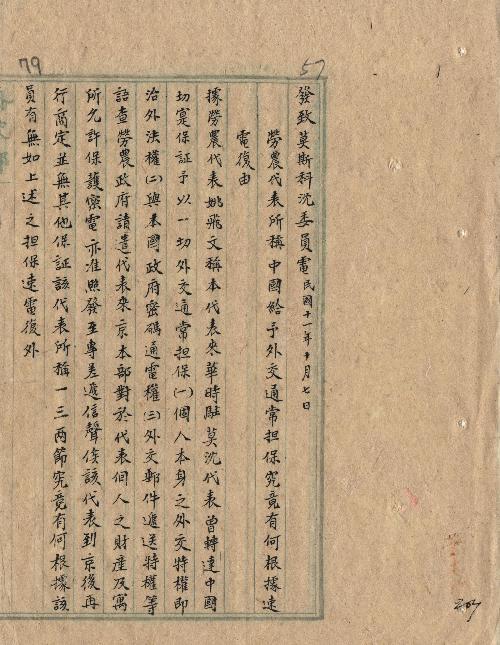 79
57
發致莫斯科沈委員電 民國十一年十月七日
勞農代表所稱中國給予外交通常担保究竟有何根據速
電復由
據勞農代表姚飛文稱本代表來華時駐莫沈代表曾轉達中國
切寔保証予以一切外交通常担保(一)個人本身之外交特權即
治外法權(二)與本國政府密碼通電權(三)外交郵件遞送特權等
語查勞農政府請遣代表來京本部對於代表個人之財產及寓
所允許保護密電亦准照發至專差遞信聲俟該代表到京後再
行商定並無其他保証該代表所稱一三兩節究竟有何根據該
員有無如上述之担保速電復外